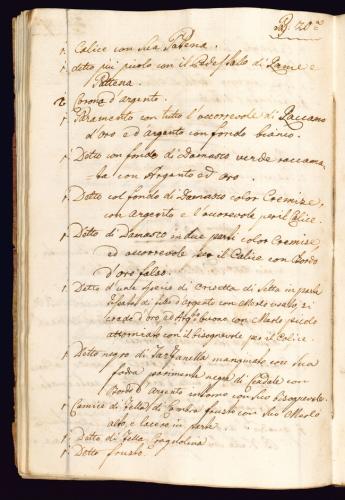 Pag. 120
1. Calice con sua Patena.
1. detto più picolo con il Piedestallo di Rame e
Pattena.
2 Corone d'argento.
1. Paramento con tutto l'occorrevole di
d'oro ed argento con fondo bianco.
1. Detto con fondo di Damasco verde raccama=
=ta con Argento ed oro.
1. Detto col fondo di Damasco color Cremize,
con Argento e l'occorevole per il Calice.
1. Detto di Damasco in due parti color Cremize,
ed occorevole per il Calice con Bordo
d'oro falso.
1. Detto d'una specie di di Setta in parte
di d'argento con Merlo
d'oro, ed con Merlo picolo
attorniato con il bisognevole per il Calice.
1. Detto negro di con sua
fodra parimente negra di con
Bordo d'Argento intorno con suo bisognevole.
1. Camice di Tella di frusto con suo Merlo
alto, e lacero in parte
1. Detto di Tella
1. Detto frusto.